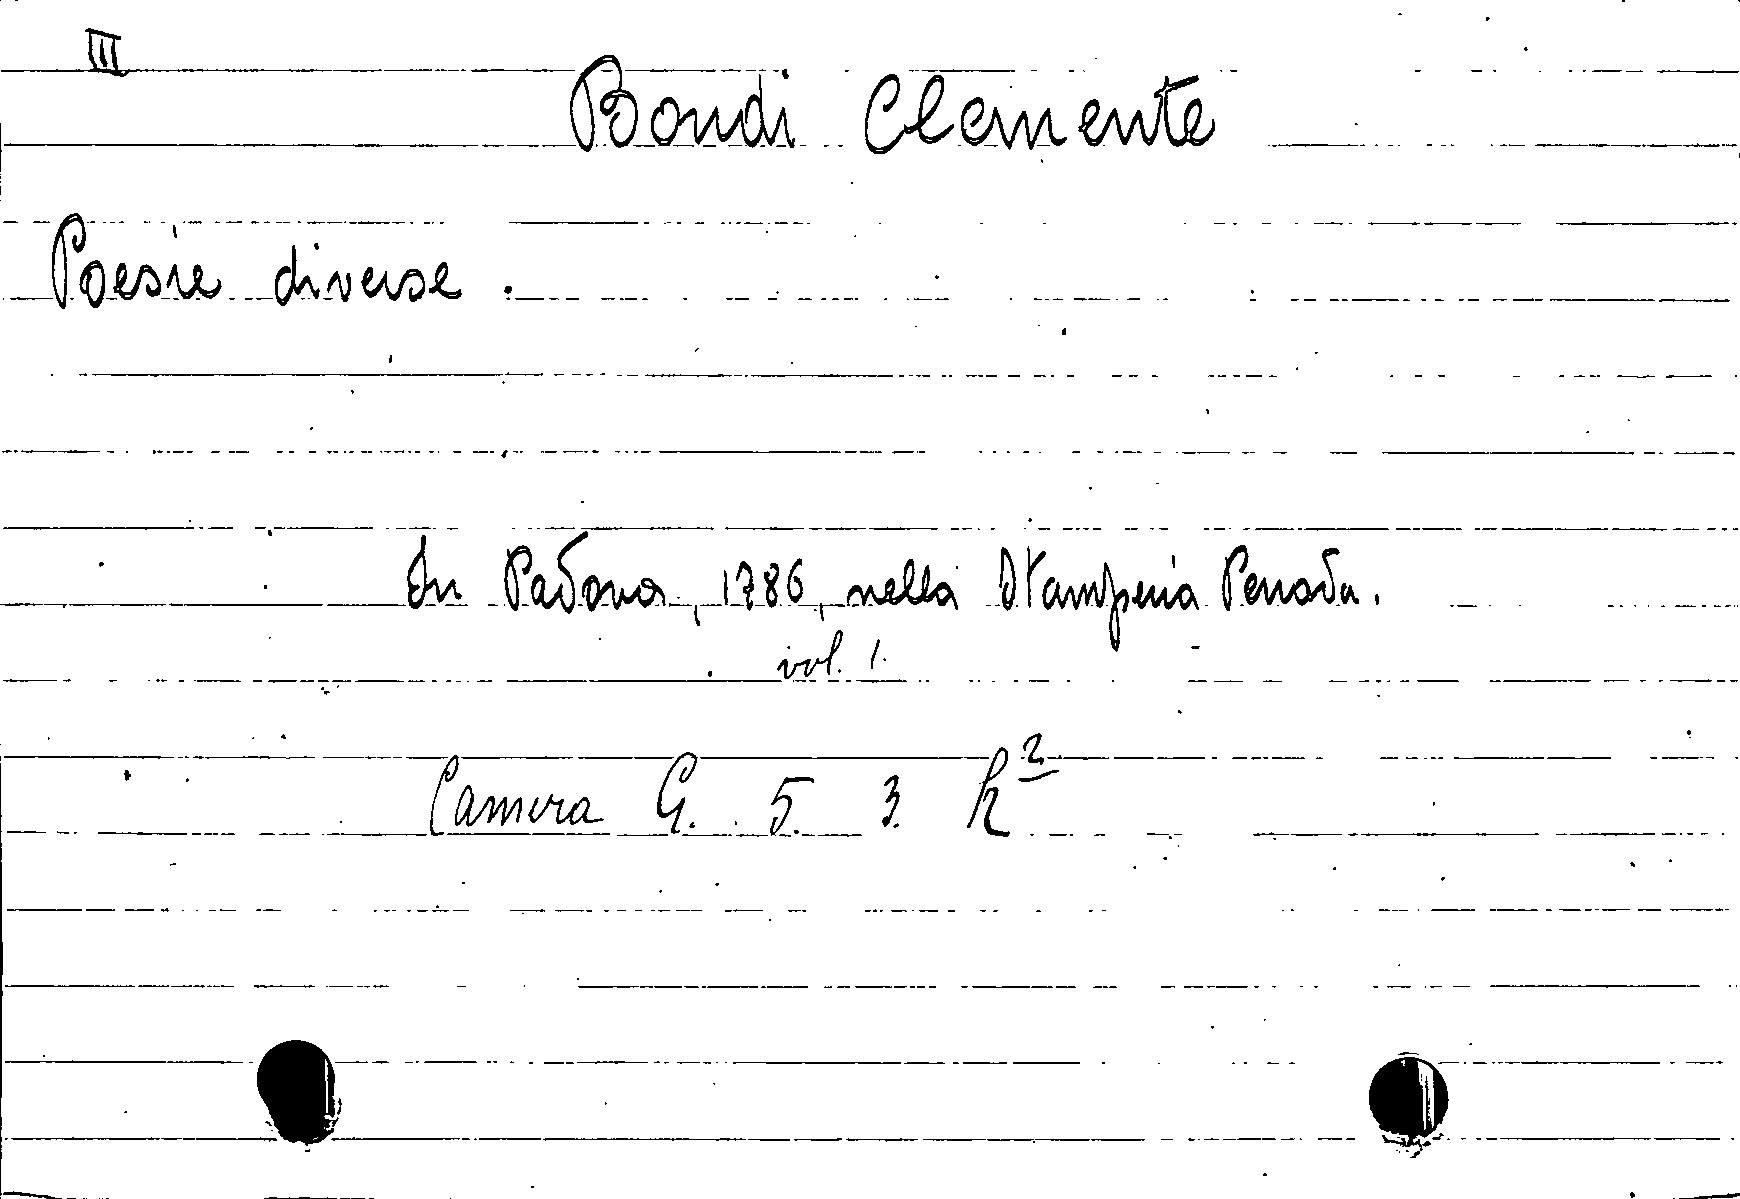 III
Bondi Clemente
Poesie diverse.
In Padova, 1786, nella Stamperia Penada.
vol. 1.
Camera G. 5. 3. h²